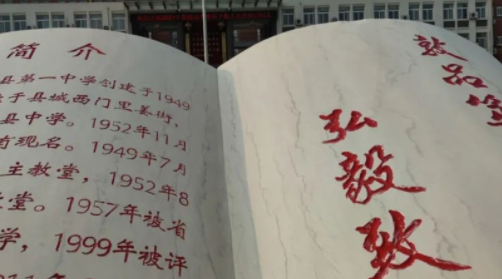 简介
县第一中学创建于1949
于县城西门里美街,
县中学。1952年11月
有现名。1949年7月
主教堂,1952年8
堂。1957年被省
学,1999年被评
敦品
弘毅致